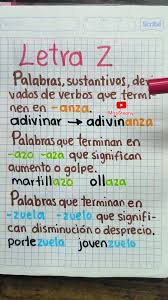 Scribe
Letra Z
Palabras, sustantivos, de
vados de verbos que termi
nen en -anza.
adivinar → adivinanza
Palabras que terminan en
-azo -aza que significan
aumento o golpe.
martillazo ollaza
Palabras que terminan en
-zuela -zuelo que signifi-
can disminución o desprecio.
portezuela jovenzuelo